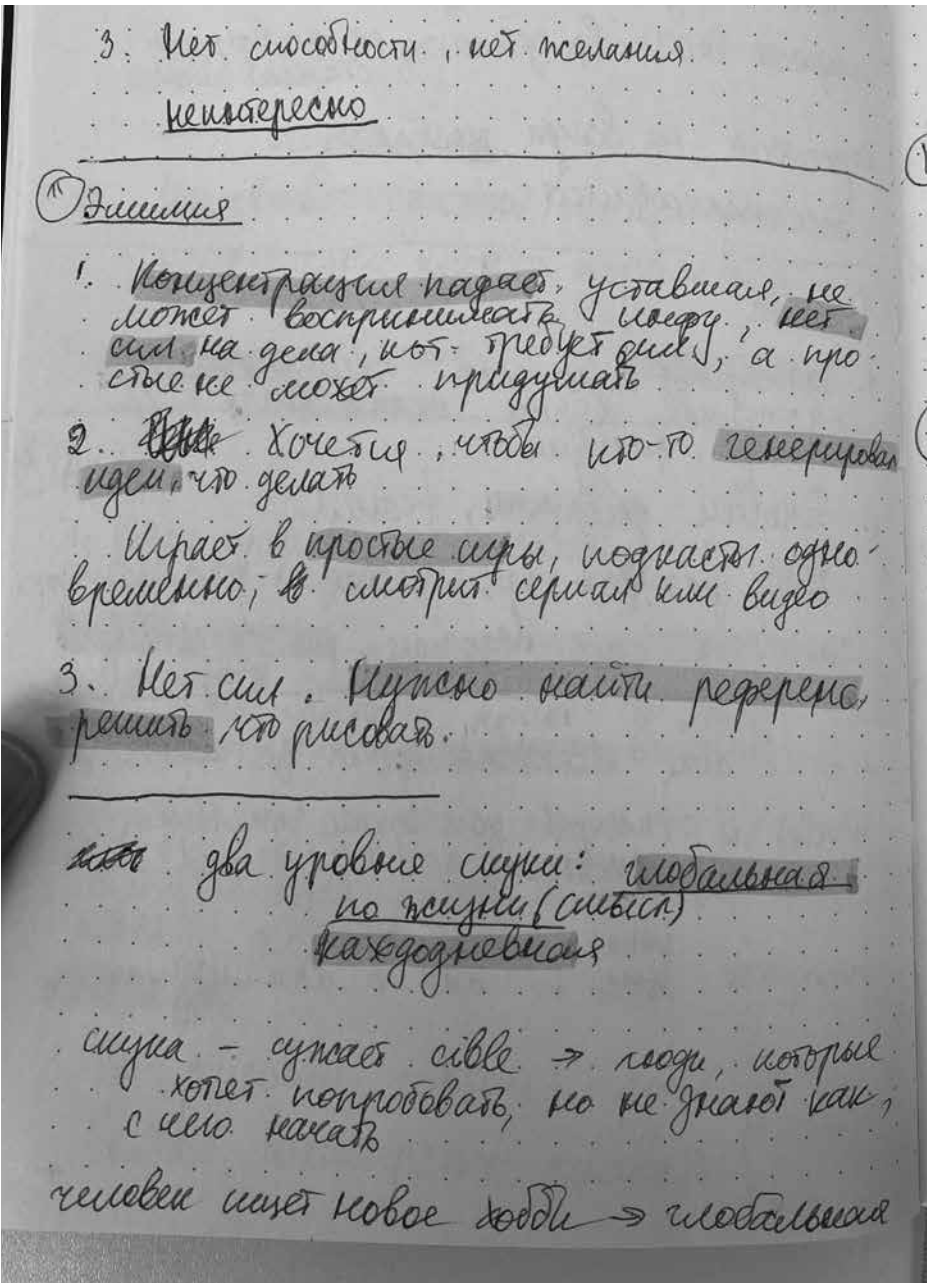 3. Нет способности, нет желания
неинтересно
11 Эмилия
1. Концентрация падает, уставшая, не
может воспринимать инфу, нет
сил на дела, кот. требует сил, а про-
стые не может придумать
2. Хочется, чтобы кто-то генерировал
идеи, что делать
Играет в простые игры, подкасты одно-
временно, смотрит сериал или видео
3. Нет сил. Нужно найти референс,
решить, что рисовать.
два уровня скуки: глобальная
по жизни (смысл)
каждодневная
скука – сужает cible → люди, которые
хотят попробовать, но не знают как,
с чего начать
человек ищет новое хобби → глобальная